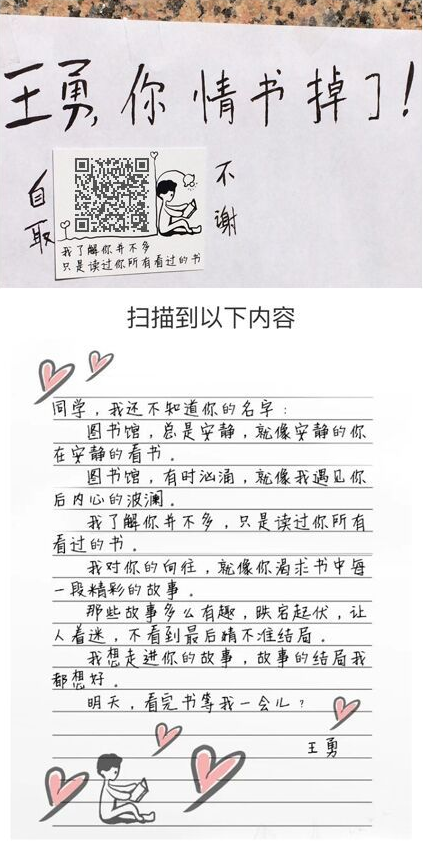 王勇,你情书掉了!
自取
不谢
我了解你并不多
只是读过你所有看过的书
扫描到以下内容
同学,我还不知道你的名字:
图书馆,总是安静,就像安静的你
在安静的看书。
图书馆,有时汹涌,就像我遇见你
后内心的波澜。
我了解你并不多,只是读过你所有
看过的书。
我对你的向往,就像你渴求书中每
一段精彩的故事。
那些故事多么有趣,跌宕起伏,让
人着迷,不看到最后猜不准结局。
我想走进你的故事,故事的结局我
都想好。
明天,看完书等我一会儿?
王勇